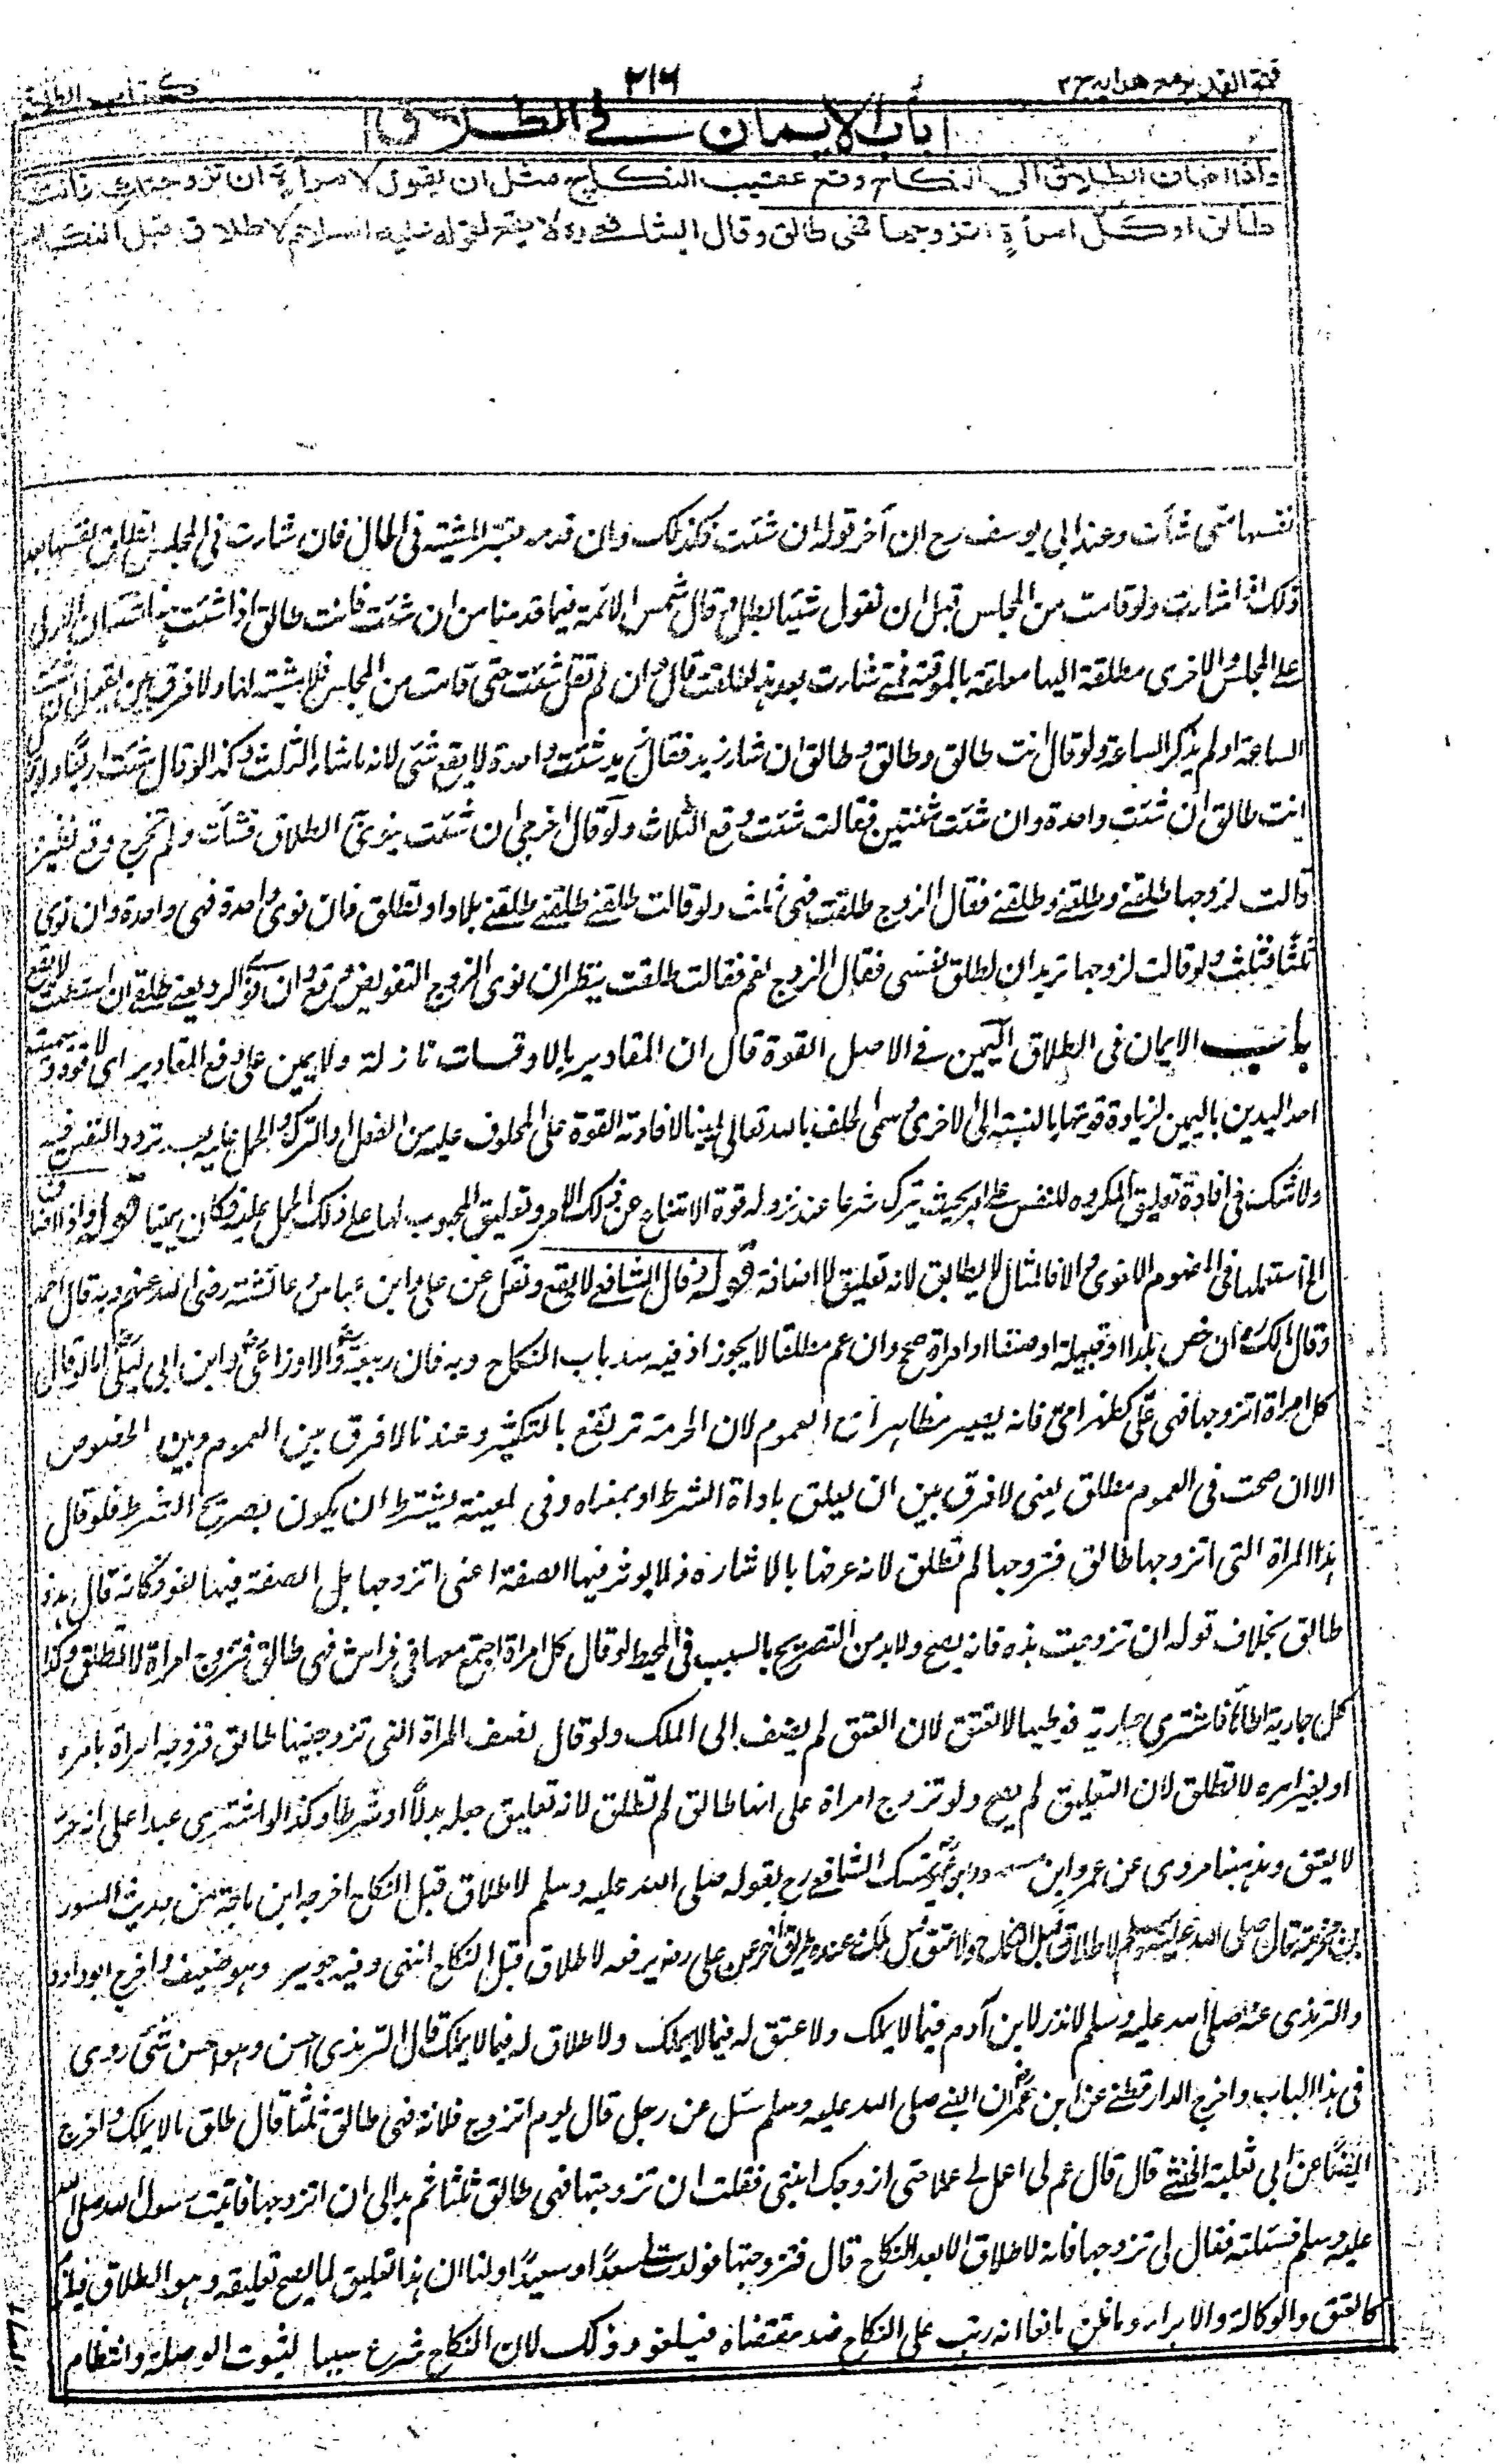 فتح القدير مع هدايه ج٢
٢١٦
كتاب الطلاق
باب الايمان فى الطلاق
واذا اضاف الطلاق الى النكاح وقع عقيب النكاح مثل ان يقول لامرأة ان تزوجتك فانت
طالق او كل امرأة اتزوجها فهى طالق وقال الشافعى رح لا يقع لقوله عليه السلام لا طلاق قبل النكاح
نفسها متى شأت وعند ابى يوسف رح ان أخر قوله ان شئت فكذلك وان قدمه تعتبر المشية فى الحال فان شارت فى المجلس تطلق نفسها بعد
ذلك اذا شارت ولو قامت من المجلس قبل ان تقول شيئا بطل وقال شمس الائمة فيما قدمنا من ان شئت فانت طالق اذا شئت
على المجلس والاخرى مطلقة اليها معلقة بالموقتة فمتى شارت بعد هذا طلقت قال وان لم تقل شئت حتى قامت من المجلس فلا مشية لها ولا فرق بين ان يقول ان شئت
الساعة او لم يذكر الساعة ولو قال انت طالق وطالق وطالق ان شاء زيد فقال زيد شئت واحدة لا يقع شئ لانه ما شاء الثلث وكذا لو قال شئت اربعا ولو قال
انت طالق ان شئت واحدة وان شئت ثنتين فقالت شئت وقع الثلاث ولو قال اخرجى ان شئت ينوى الطلاق فشأت ولم تخرج وقع
قالت لزوجها طلقنى وطلقنى وطلقنى فقال الزوج طلقت فهى ثلث ولو قالت طلقنى طلقنى طلقنى بلا واو تطلق فان نوى واحدة فهى واحدة وان نوى
ثلثا فثلث ولو قالت لزوجها تريد ان اطلق نفسى فقال الزوج نعم فقالت طلقت ينظر ان نوى الزوج التفويض وقع وان نوى الرد يعنى طلقى ان استطعت لا يقع
باب الايمان فى الطلاق اليمين فى الاصل القوة قال ان المقادير بالاوقات نازلة ولا يمين على دفع المقادير اى لا قوة وسميت
احد اليدين باليمين لزيادة قوتها بالنسبة الى الاخرى وسمى الحلف بالله تعالى يمينا لافادته القوة على المحلوف عليه من الفعل او الترك والحمل عليه بسبب تردد النفس فيه
ولا شك فى افادة تعليق المكروه للنفس على امر بحيث يترك شرعا عند نزوله قوة الامتناع عن ذلك الامر وتعليق المحبوب لها على ذلك الحمل عليه فكان يمينا قوله واذا اضاف
الخ استعملها فى المفهوم اللغوى والا فالمثال لا يطابق لانه تعليق لا اضافة قوله وقال الشافعى لا يقع ونقل عن على وابن عباس وعائشة رضى الله عنهم وبه قال احمد
وقال مالك رح ان خص بلدا او قبيلة او صنفا او امرأة صح وان عم مطلقا لا يجوز اذ فيه سد باب النكاح وبه قال ربيعة والاوزاعى وابن ابى ليلى اما لو قال
كل امرأة اتزوجها فهى على كظهر امى فانه يصير مظاهرا فى العموم لان الحرمة ترتفع بالتكفير وعندنا لا فرق بين العموم وبين الخصوص
الا ان صحته فى العموم مطلق يعنى لا فرق بين ان يعلق باداة الشرط او بمعناه وفى المعينة يشترط ان يكون بصريح الشرط فلو قال
هذا المرأة التى اتزوجها طالق فتزوجها لم تطلق لانه عرفها بالاشارة فلا يوثر فيها الصفة اعنى اتزوجها بل الصفة فيها لغو فكانه قال هذه
طالق بخلاف قوله ان تزوجت هذه فانه يصح ولا بد من التصريح بالسبب فى المحيط لو قال كل امرأة اجتمع معها فى فراش فهى طالق فتزوج امرأة لا تطلق وكذا
كل جارية اطأها فاشترى جارية فوطيها لا تعتق لان العتق لم يضف الى الملك ولو قال نصف المرأة التى تزوجنيها طالق فزوجه امرأة بامره
او بغير امره لا تطلق لان التعليق لم يصح ولو تزوج امرأة على انها طالق لم تطلق لانه تعليق جعله بدلا او شرطا وكذا لو اشترى عبدا على انه حر
لا يعتق ومذهبنا مروى عن عمر وابن مسعود وابن عمر تمسك الشافعى رح بقوله صلى الله عليه وسلم لا طلاق قبل النكاح اخرجه ابن ماجة من حديث المسور
بن مخرمة قال صلى الله عليه وسلم لا طلاق قبل النكاح ولا عتق قبل ملك وعنده طريق اخر عن على رضه يرفعه لا طلاق قبل النكاح انتهى وفيه جويبر وهو ضعيف واخرج ابو داود
والترمذى عنه صلى الله عليه وسلم لا نذر لابن آدم فيما لا يملك ولا عتق له فيما لا يملك ولا طلاق له فيما لا يملك قال الترمذى حسن وهو احسن شئ روى
فى هذا الباب واخرج الدارقطنى عن ابن عمر ان النبى صلى الله عليه وسلم سئل عن رجل قال يوم اتزوج فلانة فهى طالق ثلثا قال طلق مالا يملك واخرج
ايضا عن ابى ثعلبة الخشنى قال قال عم لى اعمل لى عملا حتى ازوجك ابنتى فقلت ان تزوجتها فهى طالق ثلثا ثم بدا لى ان اتزوجها فاتيت رسول الله صلى الله
عليه وسلم فسئلته فقال لى تزوجها فانه لا طلاق الا بعد النكاح قال فتزوجتها فولدت لى سعدا وسعيدا ولنا ان هذا تعليق لما يصح تعليقه وهو الطلاق فيلزم
كالعتق والوكالة والابراء وما ظن مانعا انه رتب على النكاح ضد مقتضاه فيلغو وذلك لان النكاح شرع سببا لثبوت الوصلة وانتظام